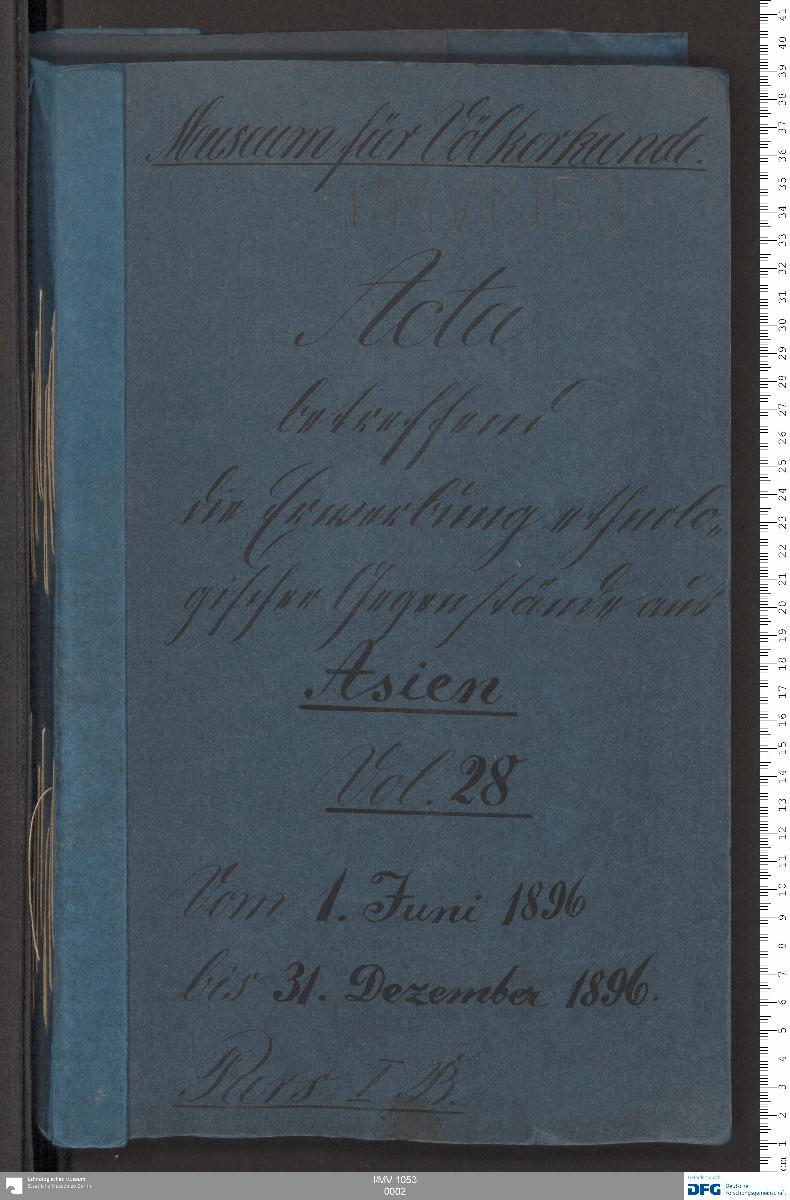 Museum für Völkerkunde.
I/MV 1053
Acta
betreffend
die Erwerbung ethnolo-
gischer Gegenstände aus
Asien
Vol. 28
Vom 1. Juni 1896
bis 31. Dezember 1896.
Pars I B.
Ethnologisches Museum
Staatliche Museen zu Berlin
I/MV 1053
0002
Gefördert durch
DFG Deutsche
Forschungsgemeinschaft
cm 1 2 3 4 5 6 7 8 9 10 11 12 13 14 15 16 17 18 19 20 21 22 23 24 25 26 27 28 29 30 31 32 33 34 35 36 37 38 39 40 41